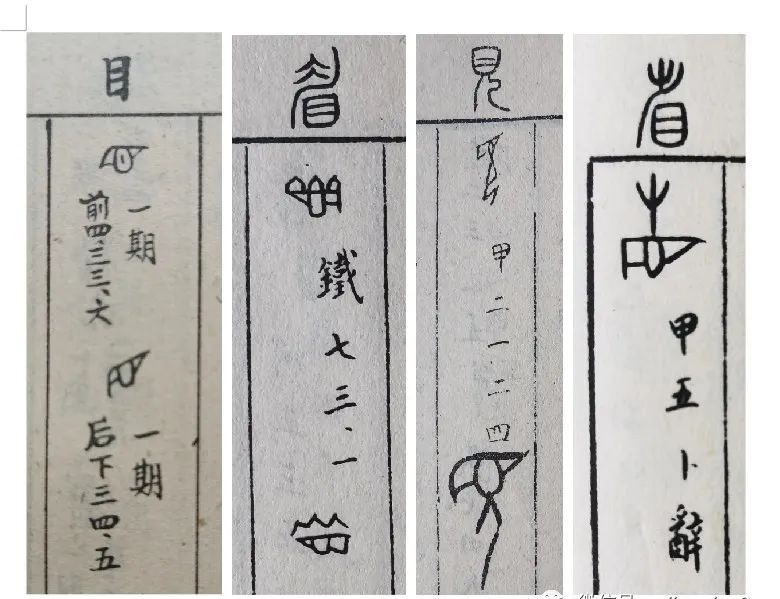 目
一期
前四、三三、六
一期
后下三四、五
眉
鐵七三、一
見
甲二一二四
省
甲五卜辭